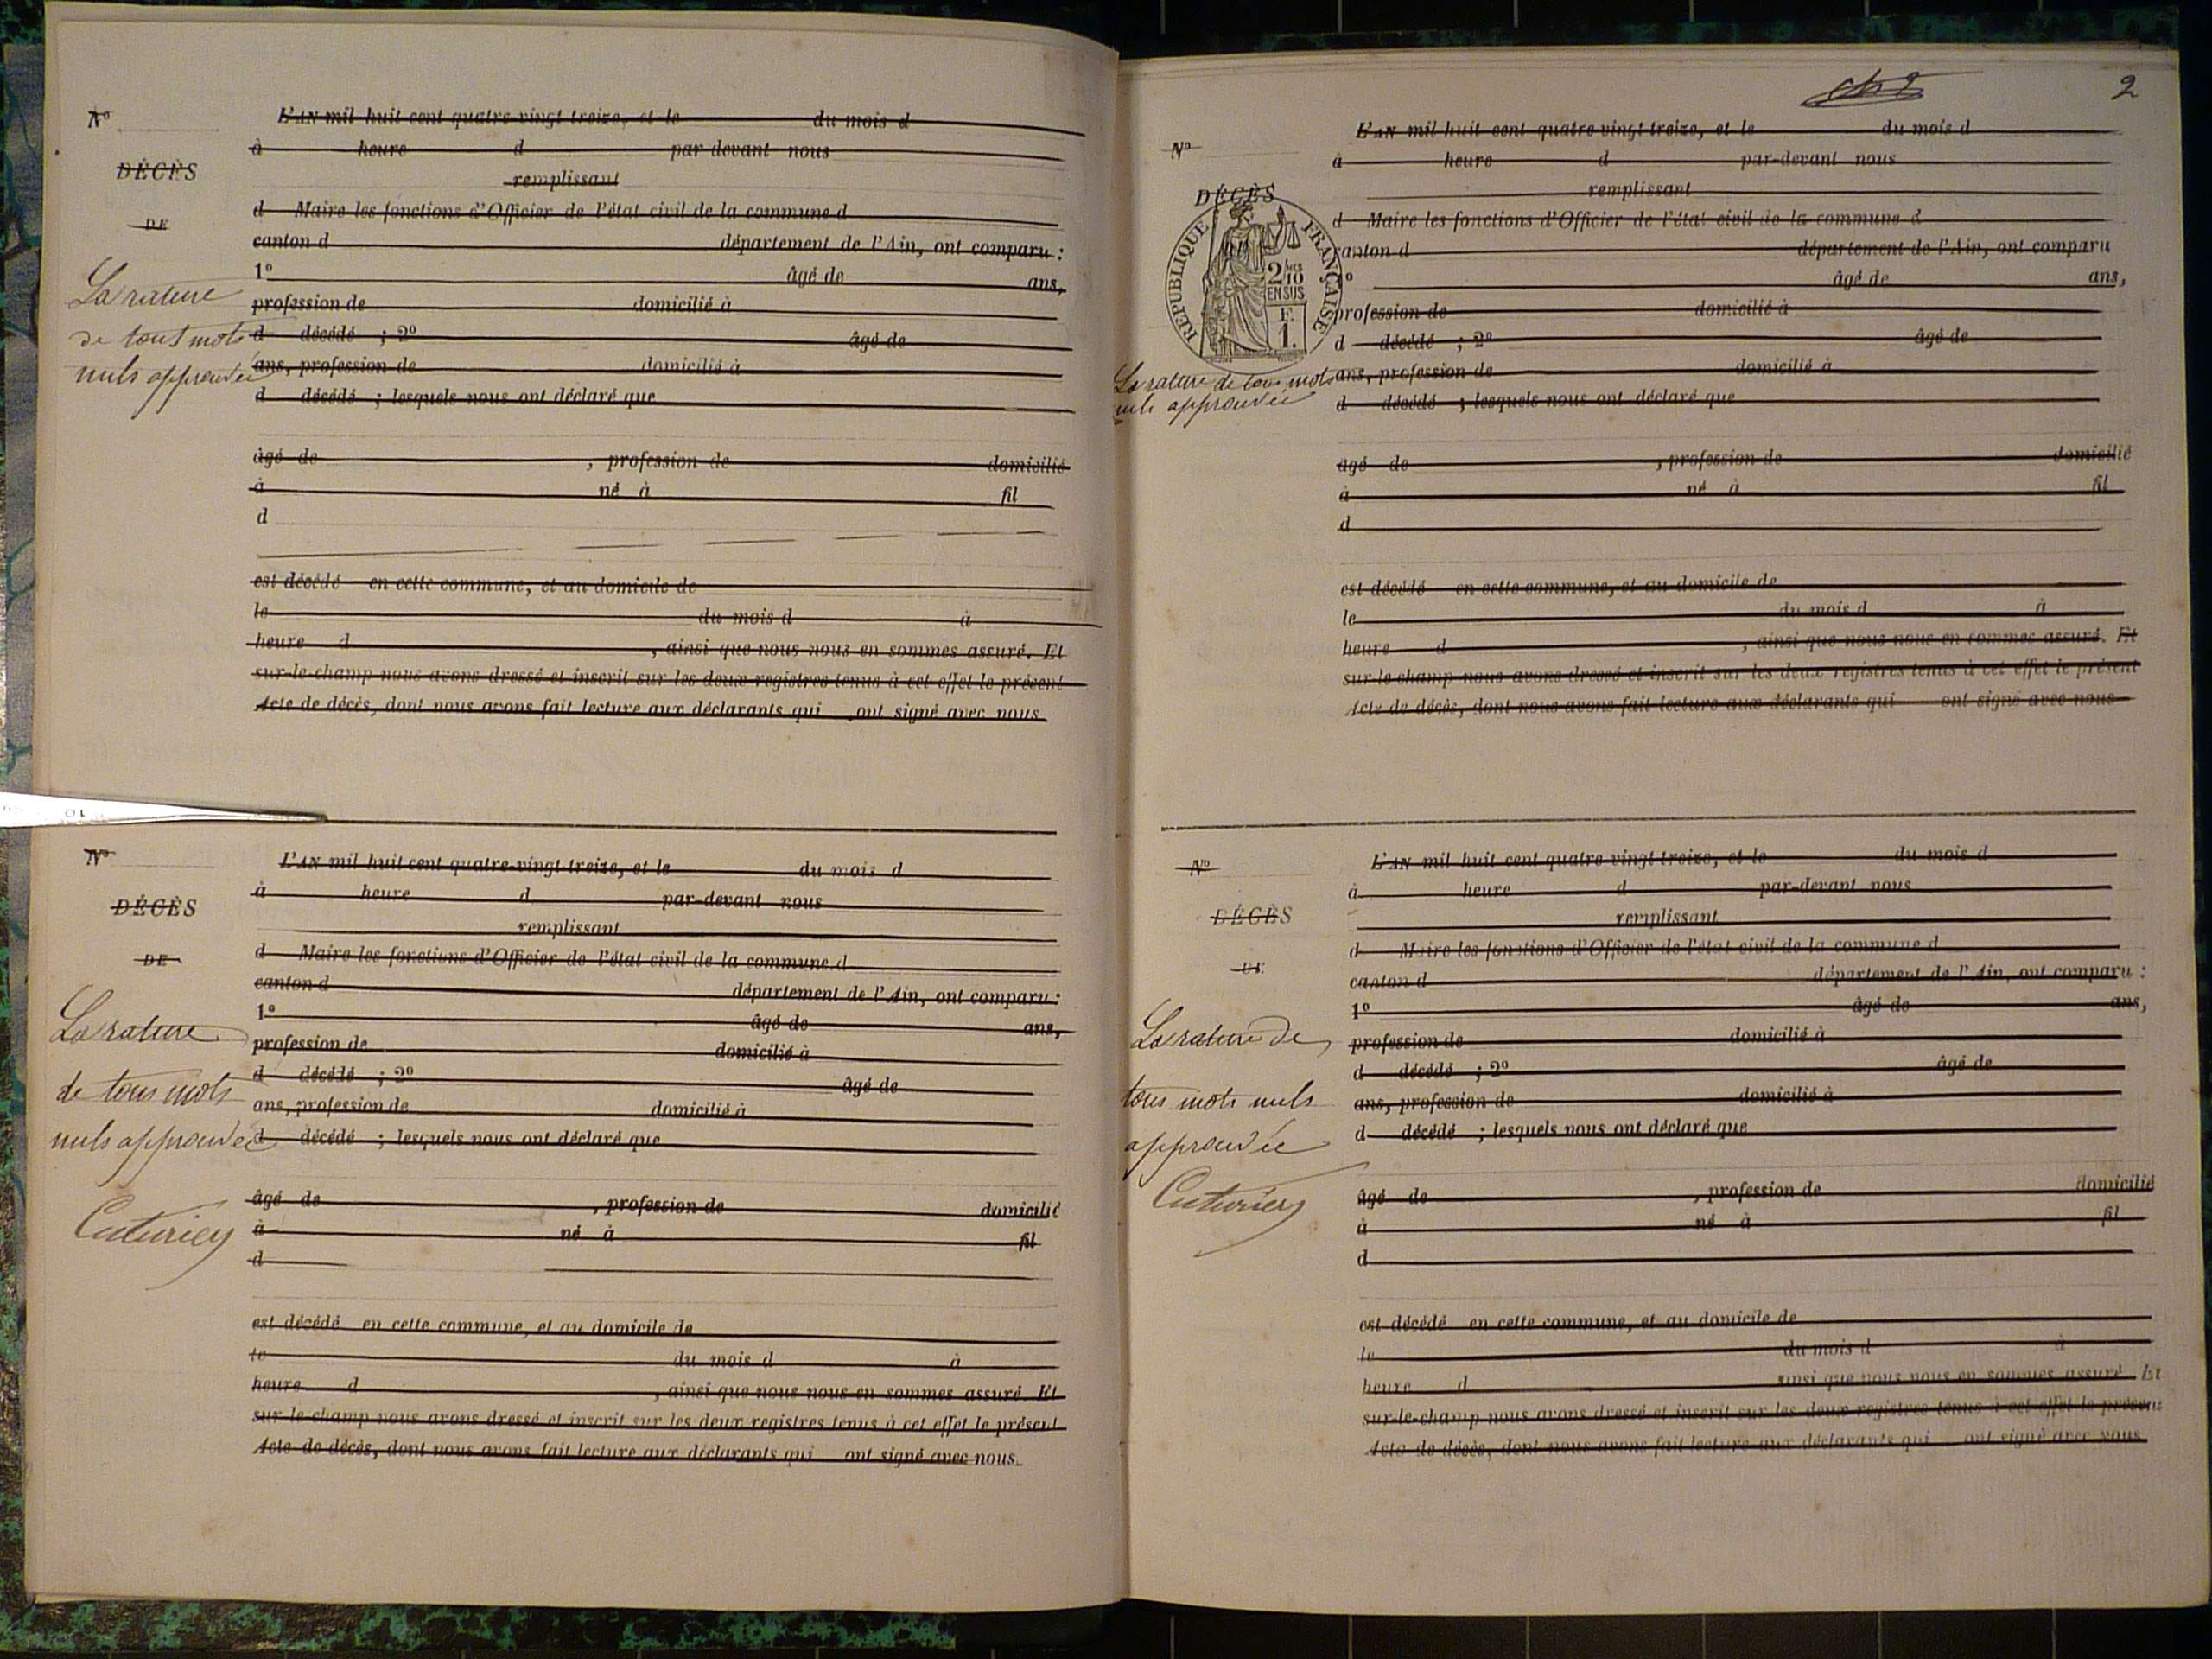 N°
DÉCÈS
DE
La rature
de tout mots
nuls approuvée
L'AN mil huit cent quatre-vingt-treize, et le du mois d
à heure d par-devant nous
remplissant
d Maire les fonctions d'Officier de l'état civil de la commune d
canton d département de l'Ain, ont comparu :
1° âgé de ans,
profession de domicilié à
d décédé ; 2° âgé de
ans, profession de domicilié à
d décédé ; lesquels nous ont déclaré que
âgé de , profession de domicilié
à né à fil
d
est décédé en cette commune, et au domicile de
le du mois d à
heure d , ainsi que nous nous en sommes assuré. Et
sur-le-champ nous avons dressé et inscrit sur les deux registres tenus à cet effet le présent
Acte de décès, dont nous avons fait lecture aux déclarants qui ont signé avec nous.
10
N°
DÉCÈS
DE
La rature
de tous mots
nuls approuvée
Cuturier
L'AN mil huit cent quatre-vingt-treize, et le du mois d
à heure d par-devant nous
remplissant
d Maire les fonctions d'Officier de l'état civil de la commune d
canton d département de l'Ain, ont comparu :
1° âgé de ans,
profession de domicilié à
d décédé ; 2° âgé de
ans, profession de domicilié à
d décédé ; lesquels nous ont déclaré que
âgé de , profession de domicilié
à né à fil
d
est décédé en cette commune, et au domicile de
le du mois d à
heure d , ainsi que nous nous en sommes assuré. Et
sur-le-champ nous avons dressé et inscrit sur les deux registres tenus à cet effet le présent
Acte de décès, dont nous avons fait lecture aux déclarants qui ont signé avec nous.
2
N°
DÉCÈS
RÉPUBLIQUE FRANÇAISE
2/10
EN SUS
F.
1.
La rature de tous mots
nuls approuvée
L'AN mil huit cent quatre-vingt-treize, et le du mois d
à heure d par-devant nous
remplissant
d Maire les fonctions d'Officier de l'état civil de la commune d
canton d département de l'Ain, ont comparu
1° âgé de ans,
profession de domicilié à
d décédé ; 2° âgé de
ans, profession de domicilié à
d décédé ; lesquels nous ont déclaré que
âgé de , profession de domicilié
à né à fil
d
est décédé en cette commune, et au domicile de
le du mois d à
heure d , ainsi que nous nous en sommes assuré. Et
sur-le-champ nous avons dressé et inscrit sur les deux registres tenus à cet effet le présent
Acte de décès, dont nous avons fait lecture aux déclarants qui ont signé avec nous
N°
DÉCÈS
DE
La rature de
tous mots nuls
approuvée
Cuturier
L'AN mil huit cent quatre-vingt-treize, et le du mois d
à heure d par-devant nous
remplissant
d Maire les fonctions d'Officier de l'état civil de la commune d
canton d département de l'Ain, ont comparu :
1° âgé de ans,
profession de domicilié à
d décédé ; 2° âgé de
ans, profession de domicilié à
d décédé ; lesquels nous ont déclaré que
âgé de , profession de domicilié
à né à fil
d
est décédé en cette commune, et au domicile de
le du mois d à
heure d ainsi que nous nous en sommes assuré. Et
sur-le-champ nous avons dressé et inscrit sur les deux registres tenus à cet effet le présent
Acte de décès, dont nous avons fait lecture aux déclarants qui ont signé avec nous